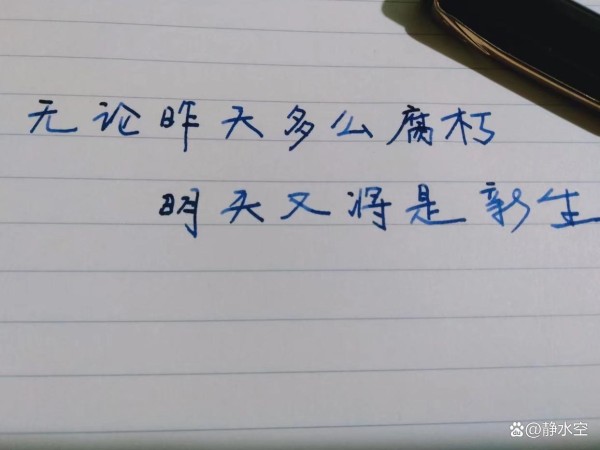 无论昨天多么腐朽
明天又将是新生
@静水空